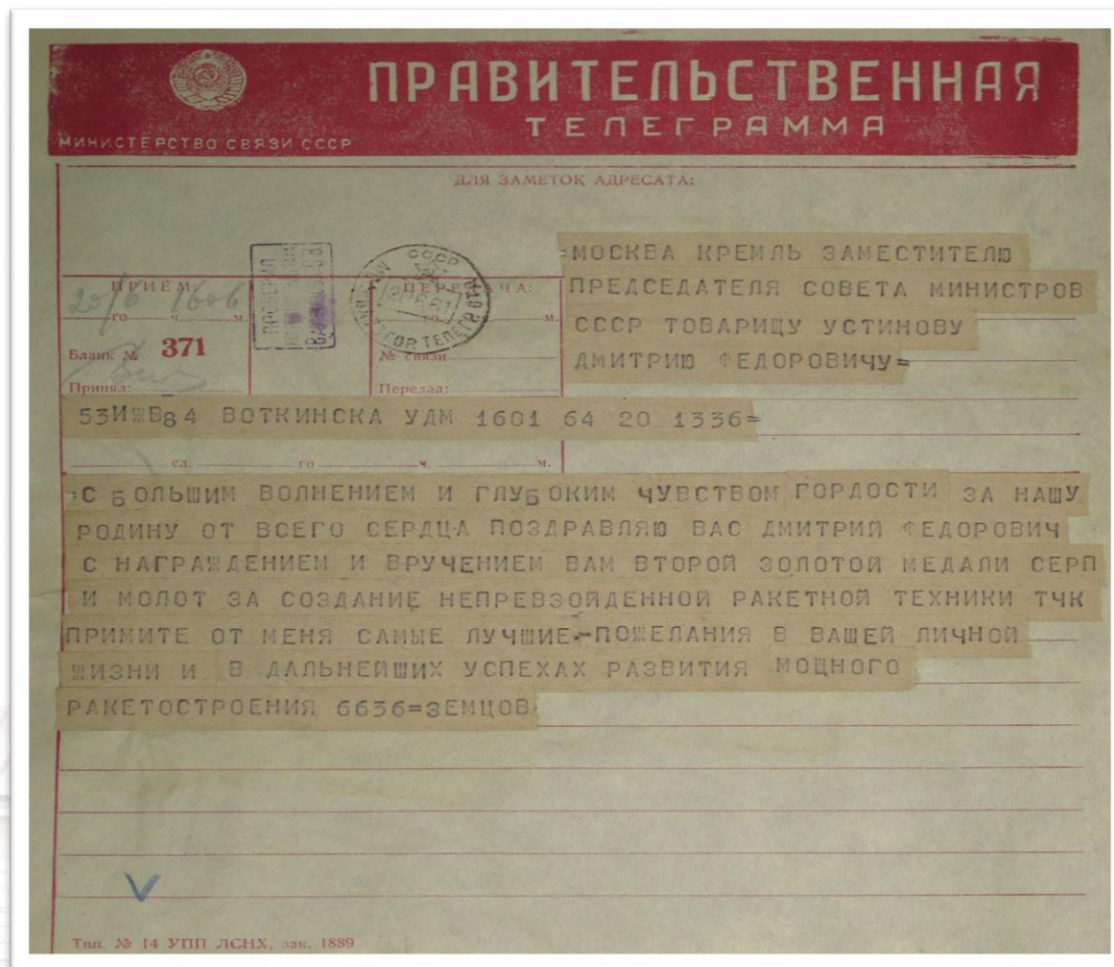 ПРАВИТЕЛЬСТВЕННАЯ
ТЕЛЕГРАММА
МИНИСТЕРСТВО СВЯЗИ СССР
ДЛЯ ЗАМЕТОК АДРЕСАТА:
=МОСКВА КРЕМЛЬ ЗАМЕСТИТЕЛЮ
ПРЕДСЕДАТЕЛЯ СОВЕТА МИНИСТРОВ
СССР ТОВАРИЩУ УСТИНОВУ
ДМИТРИЮ ФЕДОРОВИЧУ=
ПРИЕМ:
го ч. м.
Бланк № 371
Принял:
ПЕРЕДАЧА:
СССР
№ связи
Передал:
53ИЖВ84 ВОТКИНСКА УДМ 1601 64 20 1336=
сл. го ч. м.
=С БОЛЬШИМ ВОЛНЕНИЕМ И ГЛУБОКИМ ЧУВСТВОМ ГОРДОСТИ ЗА НАШУ
РОДИНУ ОТ ВСЕГО СЕРДЦА ПОЗДРАВЛЯЮ ВАС ДМИТРИЙ ФЕДОРОВИЧ
С НАГРАЖДЕНИЕМ И ВРУЧЕНИЕМ ВАМ ВТОРОЙ ЗОЛОТОЙ МЕДАЛИ СЕРП
И МОЛОТ ЗА СОЗДАНИЕ НЕПРЕВЗОЙДЕННОЙ РАКЕТНОЙ ТЕХНИКИ ТЧК
ПРИМИТЕ ОТ МЕНЯ САМЫЕ ЛУЧШИЕ-ПОЖЕЛАНИЯ В ВАШЕЙ ЛИЧНОЙ
ЖИЗНИ И В ДАЛЬНЕЙШИХ УСПЕХАХ РАЗВИТИЯ МОЩНОГО
РАКЕТОСТРОЕНИЯ 6636=ЗЕМЦОВ
Тип. № 14 УПП ЛСНХ, зак. 1889